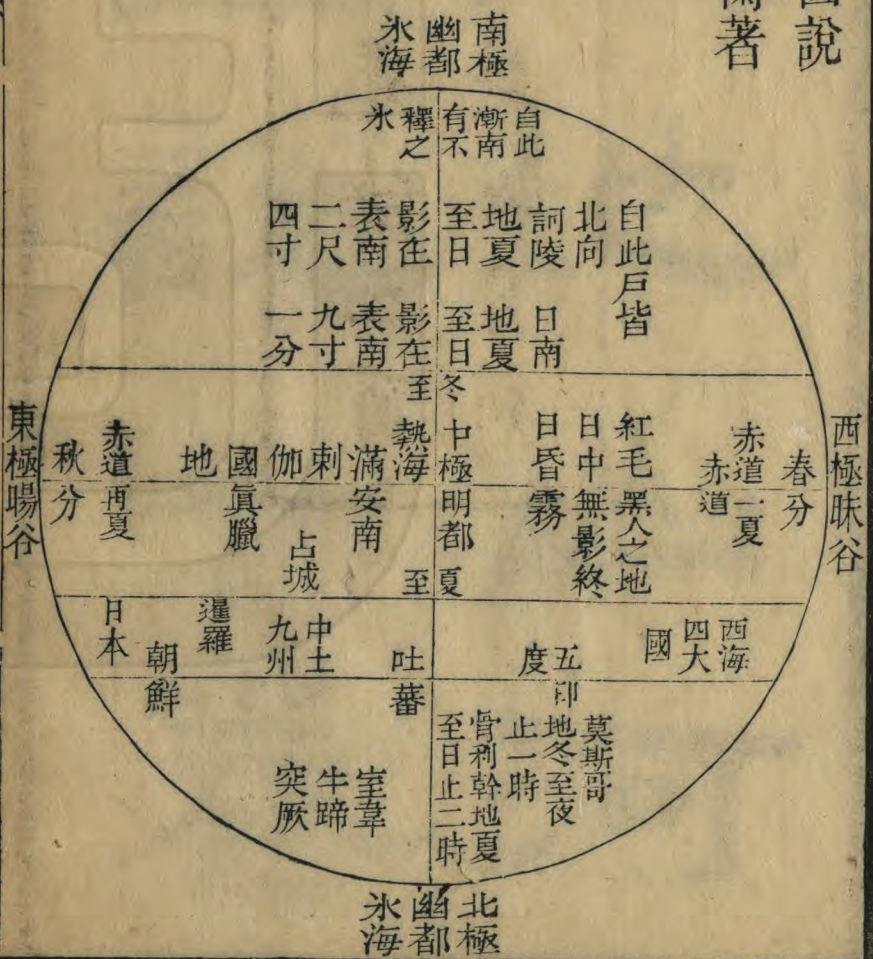 圖說
蘭著
南極
幽都
氷海
自此
漸南
有不
釋之
氷
自此戸皆
北向
訶陵
地夏
至日
影在
表南
二尺
四寸
日南
地夏
至日
影在
表南
九寸
一分
冬
至
西極昧谷
春分
赤道一夏
赤道
紅毛黑人之地
日中無影終
日昏霧
中極明都
夏
至
熱海
滿
剌
伽
國
地
安南
占城
眞臘
赤道再夏
秋分
東極暘谷
西海
四大
國
五印
度
吐蕃
中土
九州
暹羅
朝鮮
日本
莫斯哥
地冬至夜
止一時
骨利幹地夏
至日止二時
室韋
牛蹄
突厥
北極
幽都
氷海